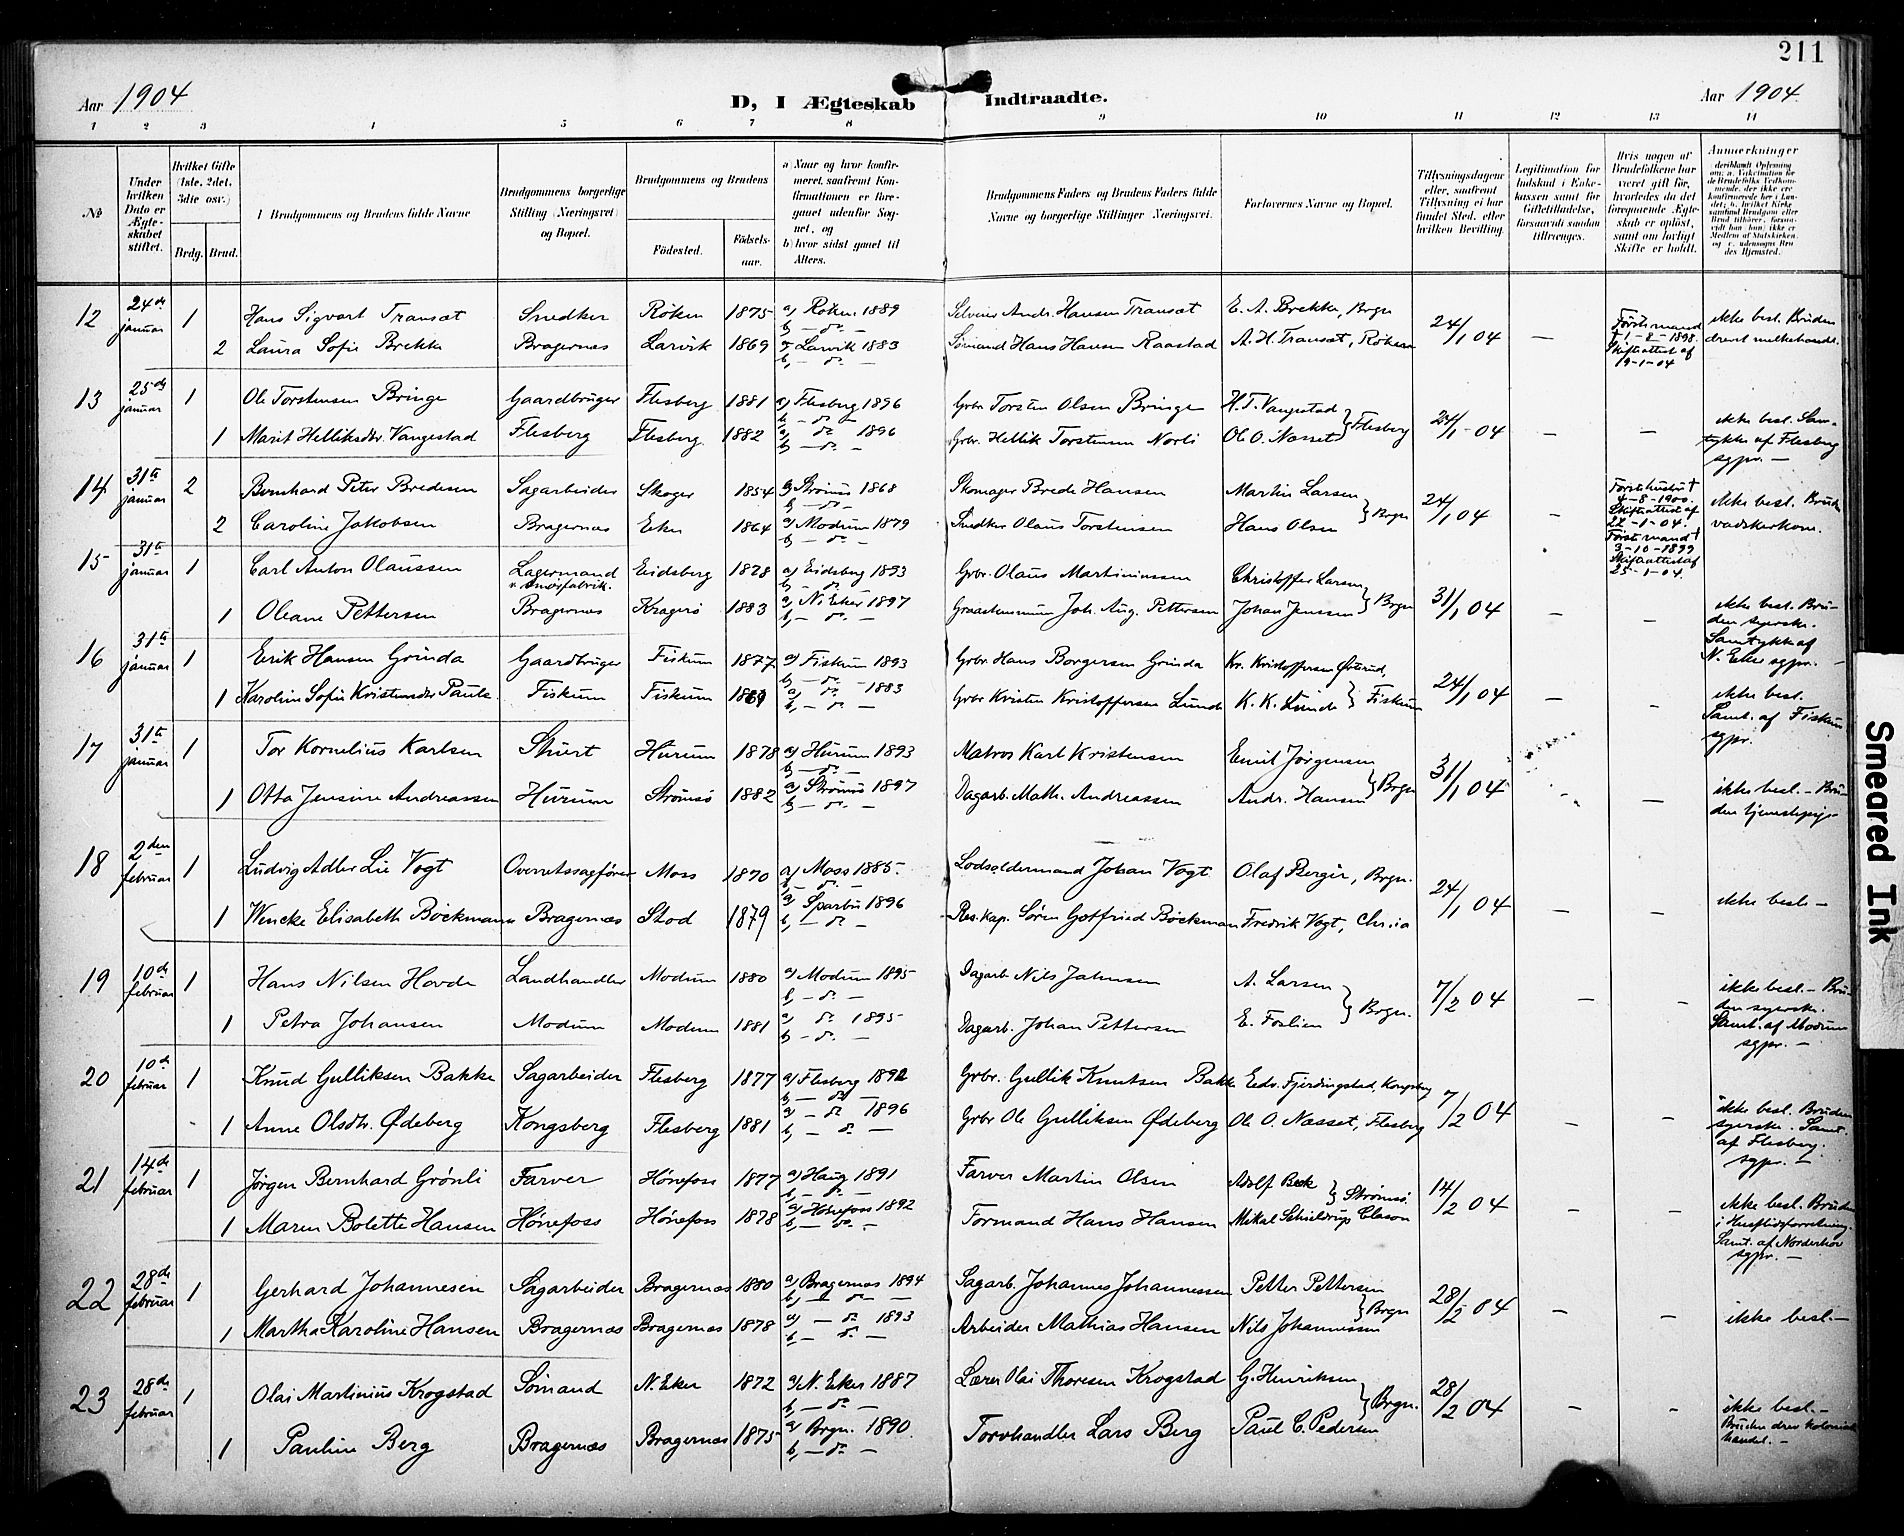 211
Aar 1904
D, I Ægteskab Indtraadte.
Aar 1904.
1 2 3 4 5 6 7 8 9 10 11 12 13 14
No
Under hvilken Dato er Ægteskabet stiftet.
Hvilket Gifte (1ste, 2det, 3die osv.)
Brdg. Brud.
Brudgommens og Brudens fulde Navne
Brudgommens borgerlige Stilling (Næringsvei) og Bopæl.
Brudgommens og Brudens
Fødested.
Fødselsaar.
a) Naar og hvor konfirmeret, saafremt Konfirmationen er foregaaet udenfor Sognet, og
b) hvor sidst gaaet til Alters.
Brudgommens Faders og Brudens Faders fulde Navne og borgerlige Stillinger (Næringsvei.
Forlovernes Navne og Bopæl.
Tillysningsdagene eller, saafremt Tillysning ei har fundet Sted, efter hvilken Bevilling.
Legitimation for Indskud i Enkekassen samt for Giftetilladelse, forsaavidt saadan tiltrænges.
Hvis nogen af Brudefolkene har været gift før, hvorledes da det foregaaende Ægteskab er opløst, samt om lovligt Skifte er holdt.
Anmærkninger
12 24de januar 1 Hans Sigvart Transæt Snedker Røken 1875 a) Røken 1889 Silvius Andr. Hansen Transæt E. A. Brekke, Brgn 24/1 04 — Første mand † 1-8-1898. Skifteattest af 19-1-04 ikke besl. Bruden
2 Laura Sofie Brekke Bragernæs Larvik 1869 a) Larvik 1883 Sømand Hans Hansen Raastad A. H. Transæt, Røken drevet melkehandel.
13 25de januar 1 Ole Torstensen Bringe Gaardbruger Flesberg 1881 a) Flesberg 1896 Grbr Torsten Olsen Bringe H. T. Vangestad } Flesberg 24/1-04 — — ikke besl. Samtykke af Flesberg sgpr. —
1 Marit Helliksdtr. Vangestad Flesberg Flesberg 1882 a) do 1896 Grbr. Hellik Torstensen Norli Ole O. Næsset
14 31te januar 2 Bernhard Peter Bredesen Sagarbeider Skoger 1854 a) Strømsø 1868 Skomager Brede Hansen Martin Larsen } Brgn 24/1 04 — Første hustru † 4-8-1900. Skifteattest af 22-1-04. ikke besl. Bruden vadskerkone.
2 Caroline Jakobsen Bragernæs Eker 1864 a) Modum 1879 Snedker Olaus Torstensen Hans Olsen Første mand † 3-10-1899 Skifteattest af 25-1-04.
15 31te januar 1 Carl Anton Olaussen Lagermand v. smørfabrik. Eidsberg 1878 a) Eidsberg 1893 Grbr. Olaus Martiniussen Christoffer Larsen } Brgn 31/1 04 — — ikke besl. Bruden syerske. Samtykke af N. Eker sgpr. —
1 Oleane Pettersen Bragernæs Kragerø 1883 a) N. Eker 1897 Joh. Aug. Pettersen Johan Jenssen
16 31te januar 1 Erik Hansen Grinda Gaardbruger Fiskum 1877 a) Fiskum 1893 Grbr Hans Borgersen Grinda Kr. Kristoffersen Ørerud, } Fiskum 24/1 04 — — ikke besl. Samt. af Fiskum sgpr.
1 Karoline Sofie Kristensdtr Fiskum Fiskum a) do 1883 Grbr Kristen Kristoffersen Lunde K. K. Lunde
17 31te januar 1 Tor Kornelius Karlsen Stuert Hurum 1878 a) Hurum 1893 Matros Karl Kristensen Emil Jørgensen } Brgn 31/1 04 — ikke besl. — Bruden tjenestepige
1 Otta Jensine Andreassen Hurum Strømsø 1882 a) Strømsø 1897 Dagarb. Math. Andreassen Andr. Hansen
18 2den februar 1 Ludvig Adler Lie Vogt Overretssagfører Moss 1870 a) Moss 1885. Lodsoldermand Johan Vogt Olaf Berger, Brgn. 24/1 04 — — ikke besl. —
1 Wencke Elisabeth Bøckmann Bragernæs Stod 1879 a) Sparbu 1896 Res. kap. Søren Gotfried Bøckman Fredrik Vogt, Chr.ia
19 10de februar 1 Hans Nilsen Hovde Landhandler Modum 1880 a) Modum 1895 Dagarb Nils Jahnsen A. Larsen } Brgn. 7/2 04 — — ikke besl. — Bruden syerske. Samt. af Modum sgpr. —
1 Petra Johansen Modum Modum 1881 a) do 1895 Dagarb. Johan Pettersen E. Foslien
20 10de februar 1 Knud Gulliksen Bakke Sagarbeider Flesberg 1877 a) Flesberg 1892 Grbr. Gullik Knutsen Bakke Edv. Fjerdingstad, Kongsberg 7/2 04 — — ikke besl. Bruden syerske. Samt. af Flesberg. sgpr. —
1 Anne Olsdtr. Ødeberg Kongsberg Flesberg 1881 a) — do 1896 Grbr Ole Gulliksen Ødeberg Ole O. Næsset, Flesberg
21 14de februar 1 Jørgen Bernhard Grønli Farver Hønefoss 1877 a) Haug 1891 Farver Martin Olsen Adolf Beck } Strømsø 14/2 04 — — ikke besl. Bruden i Husflidsforretning. Samt. af Norderhov sgpr. —
1 Maren Bolette Hansen Hønefoss Hønefoss 1878 a) Hønefoss 1892 Formand Hans Hansen Mikal Schieldrup Clason
22 28de februar 1 Gerhard Johannesen Sagarbeider Bragernæs 1880 a) Bragernæs 1894 Sagarb. Johannes Johannessen Petter Pettersen } Brgn 28/2 04 — — ikke besl. —
1 Martha Karoline Hansen Bragernæs Bragernæs 1878 a) — do 1893 Arbeider Mathias Hansen Nils Johannessen
23 28de februar 1 Olai Martinius Krogstad Sømand N. Eker 1872 a) N. Eker 1887 Lærer Olai Thoresen Krogstad G. Henriksen } Brgn. 28/2 04 — — ikke besl. — Bruden drev kolonialhandel. —
1 Pauline Berg Bragernæs Bragernæs 1875 a) Brgn. 1890. Torvhandler Lars Berg Paul C. Pedersen
Smeared Ink